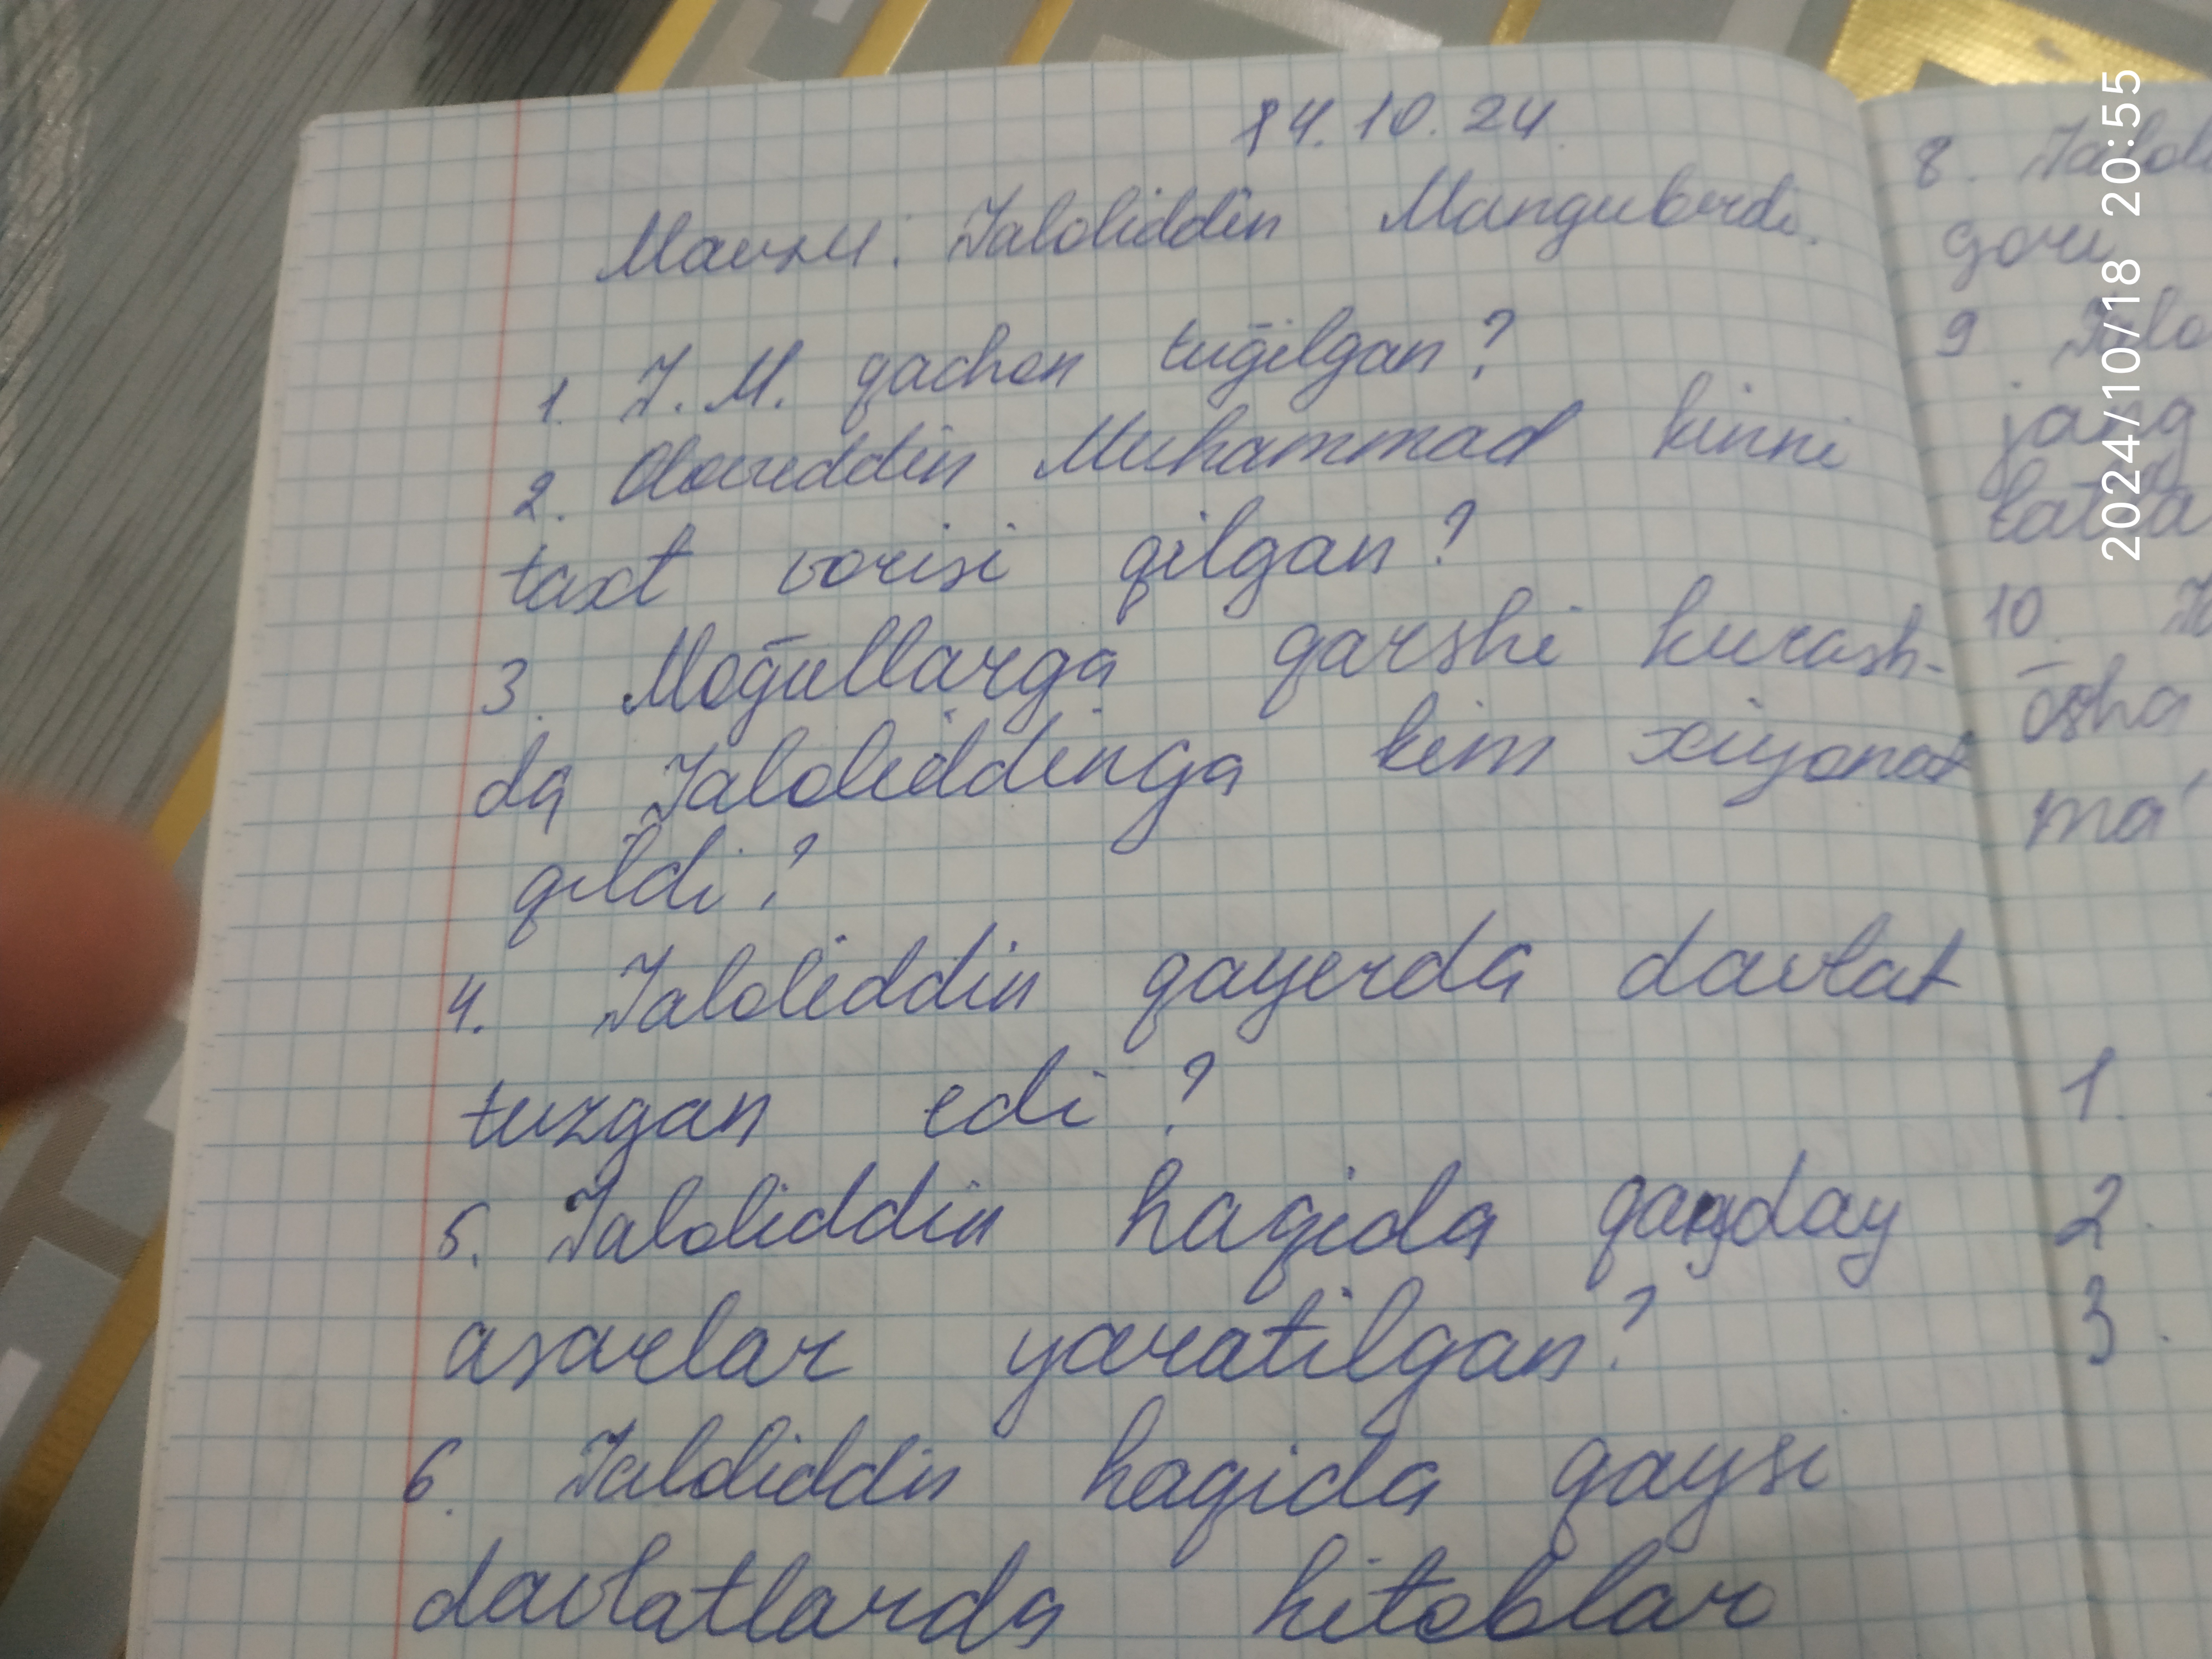 14.10.24
Mavzu: Jaloliddin Manguberdi.
1. J. M. qachon tuḡilgan?
2. Olouddin Muhammad kinni
taxt vorisi qilgan?
3. Moḡullarga qarshi kurash-
da Jaloliddinga kim xiyonat
qildi?
4. Jaloliddin qayerda davlat
tuzgan edi?
5. Jaloliddin haqida qanday
asarlar yaratilgan?
6. Jaloliddin haqida qaysi
davlatlarda kitoblar
8.
9
jang
10.
ōsha
ma'
1.
2.
3.
2024/10/18 20:55